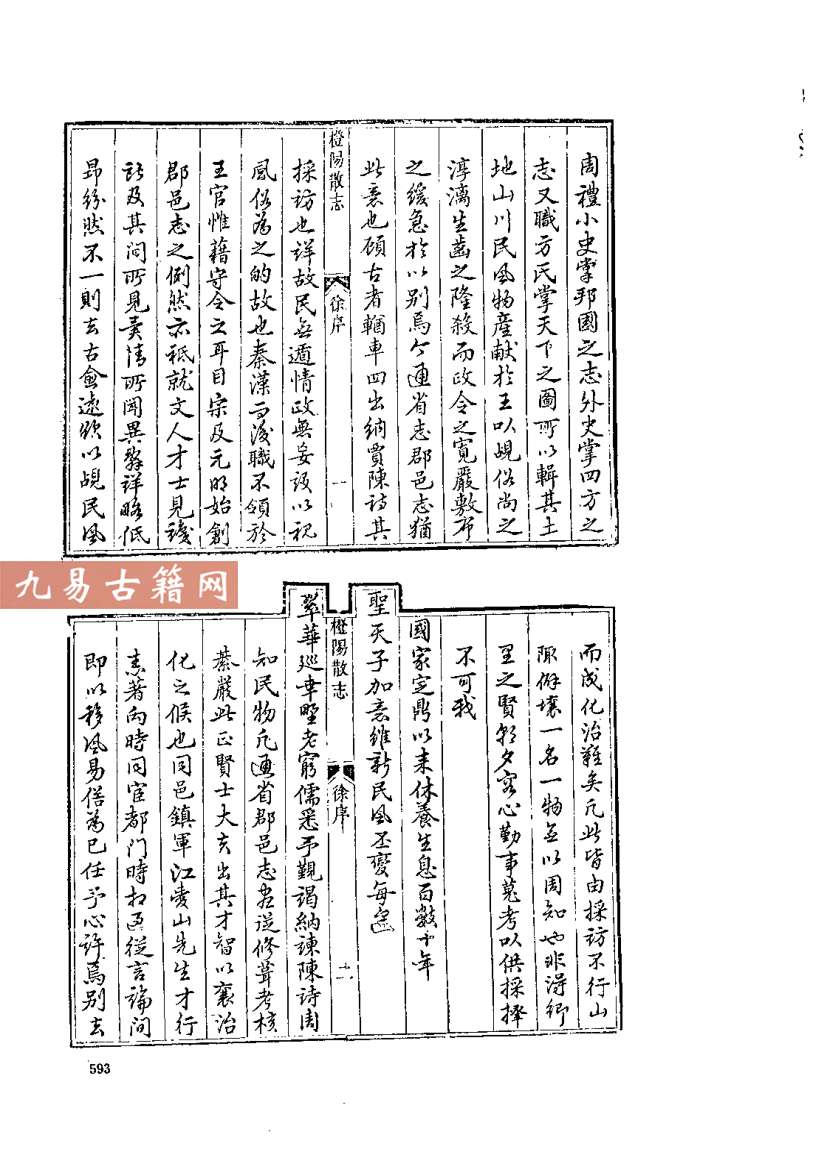 周禮小史掌邦國之志外史掌四方之
志又職方氏掌天下之圖所以輯其土
地山川民風物產献於王以覘俗尚之
淳漓生齒之隆殺而政令之寬嚴敷布
之緩急於以別焉今通省志郡邑志猶
此意也顧古者輶車四出納賈陳詩其
橙陽散志
徐序
一
採訪也詳故民無遁情政無妄設以視
風俗為之的故也秦漢而後職不領於
王官惟藉守令之耳目宋及元明始創
郡邑志之例然亦祗就文人才士見識
所及其间所見異情所聞異辭詳略低
昂紛然不一則去古愈遠欲以覘民風
九易古籍网
而成化治難矣凡此皆由採訪不行山
陬僻壤一名一物無以周知也非得鄉
里之賢朝夕究心勤事蒐考以供採擇
不可我
國家定鼎以来休養生息百數十年
聖天子加意維新民風丕變每逢
橙陽散志
徐序
二
翠華巡幸野老窮儒悉予覲謁納諫陳詩周
知民物凡通省郡邑志書逆修葺考核
綦嚴此正賢士大夫出其才智以襄治
化之候也同邑鎮軍江愛山先生才行
素著向時同宦都門時相過從言論间
即以移風易俗為己任予心許焉别去
593